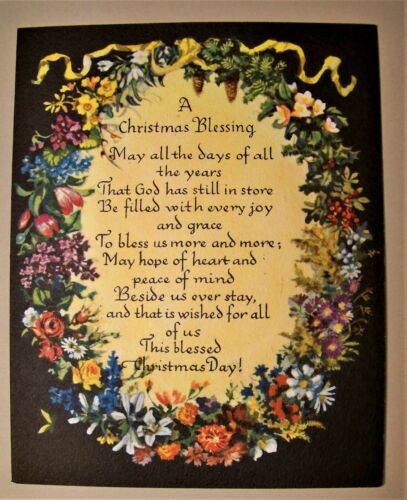 A
Christmas Blessing
May all the days of all
the years
That God has still in store
Be filled with every joy
and grace
To bless us more and more;
May hope of heart and
peace of mind
Beside us ever stay,
and that is wished for all
of us
This blessed
Christmas Day!